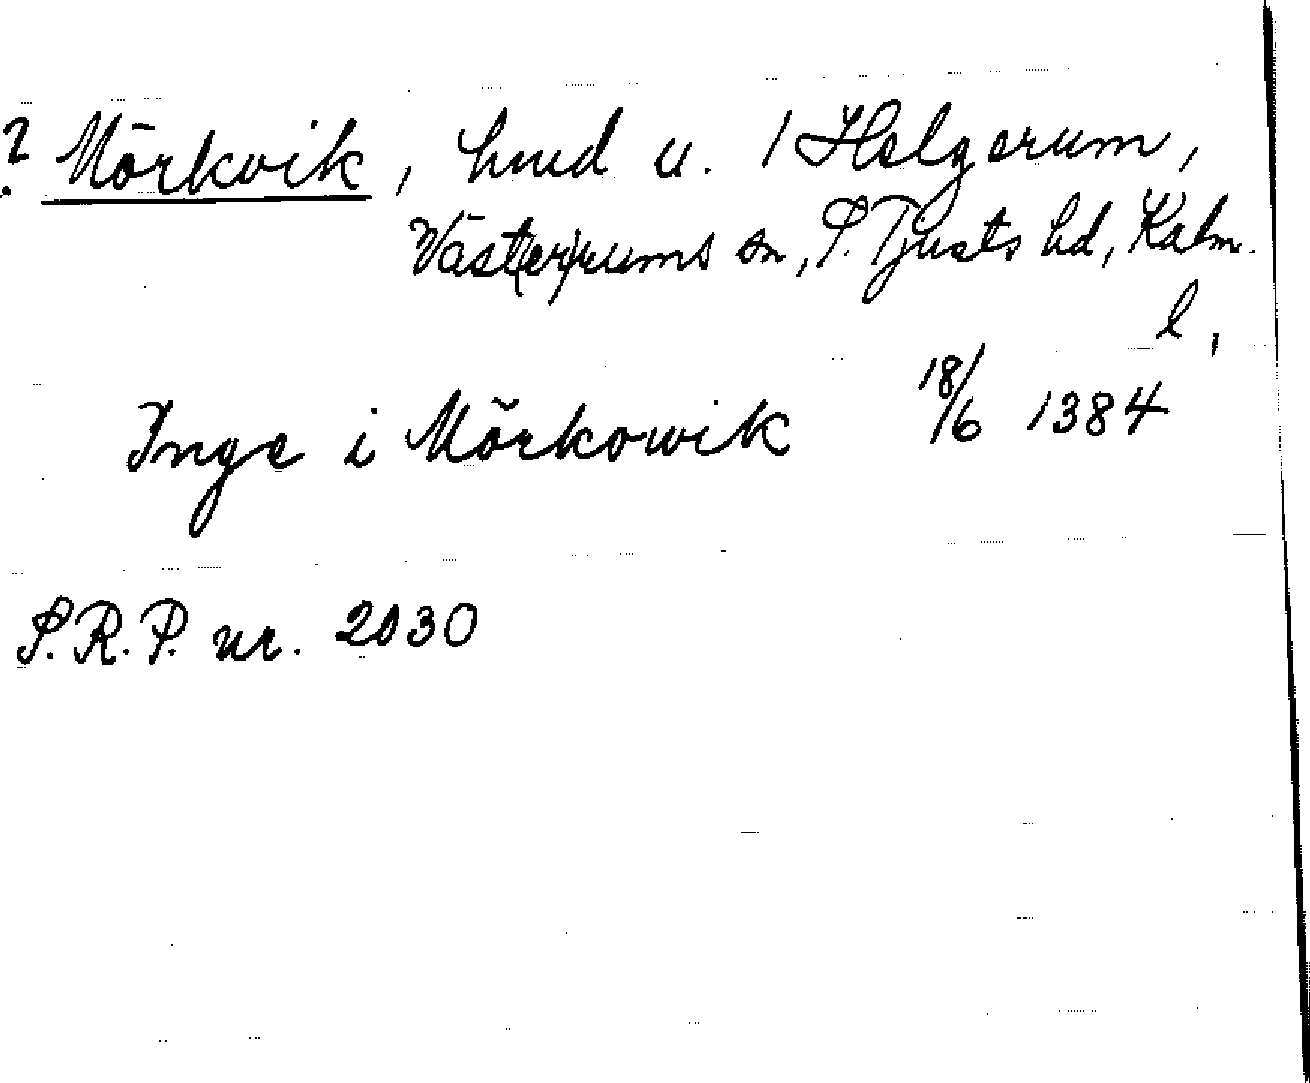 ? Mörkvik, hmd u. 1 Helgerum,
Väst(er)rums sn, S. Tjusts hd, Kalm.
l.
Inge i Mörkowik 18/6 1384
S.R.P. nr. 2030